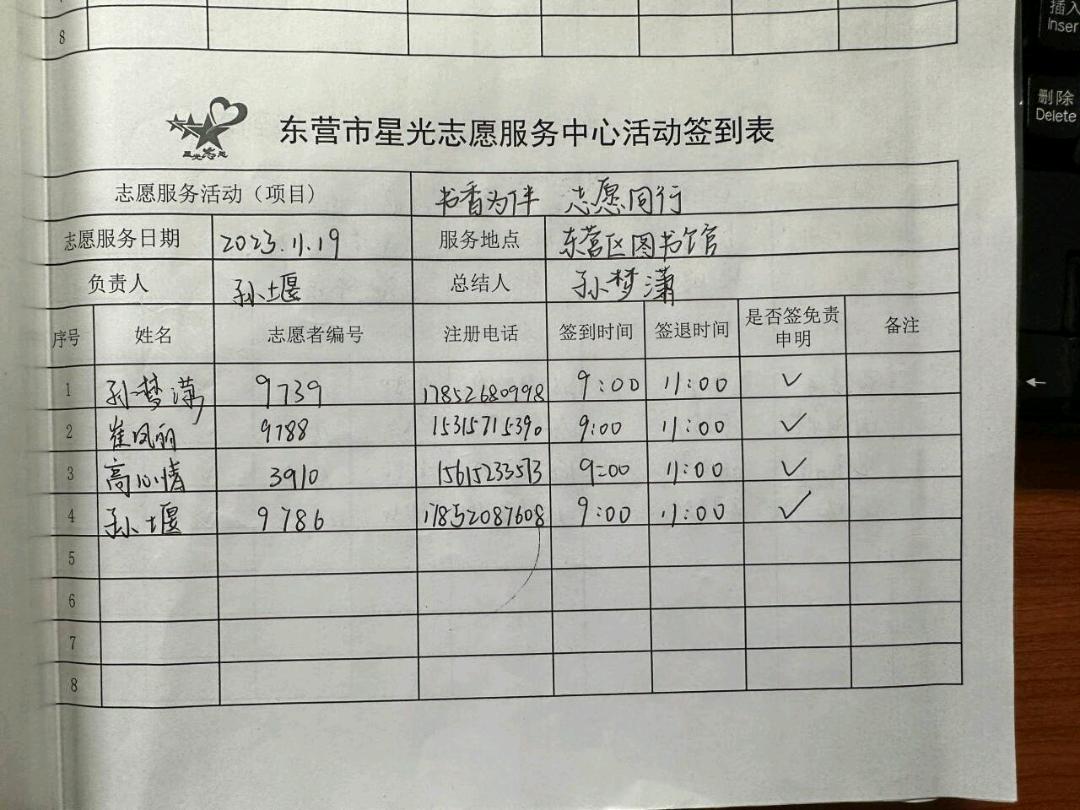 8
东营市星光志愿服务中心活动签到表
星光志愿
志愿服务活动（项目） 书香为伴 志愿同行
志愿服务日期 2023.11.19 服务地点 东营区图书馆
负责人 孙堰 总结人 孙梦潇
序号 姓名 志愿者编号 注册电话 签到时间 签退时间 是否签免责申明 备注
1 孙梦潇 9739 17852680998 9:00 11:00 ✓
2 崔凤丽 9788 15315715390 9:00 11:00 ✓
3 高心情 3910 15615233573 9:00 11:00 ✓
4 孙堰 9786 17852087608 9:00 11:00 ✓
5
6
7
8
插入
Inser
删除
Delete
←